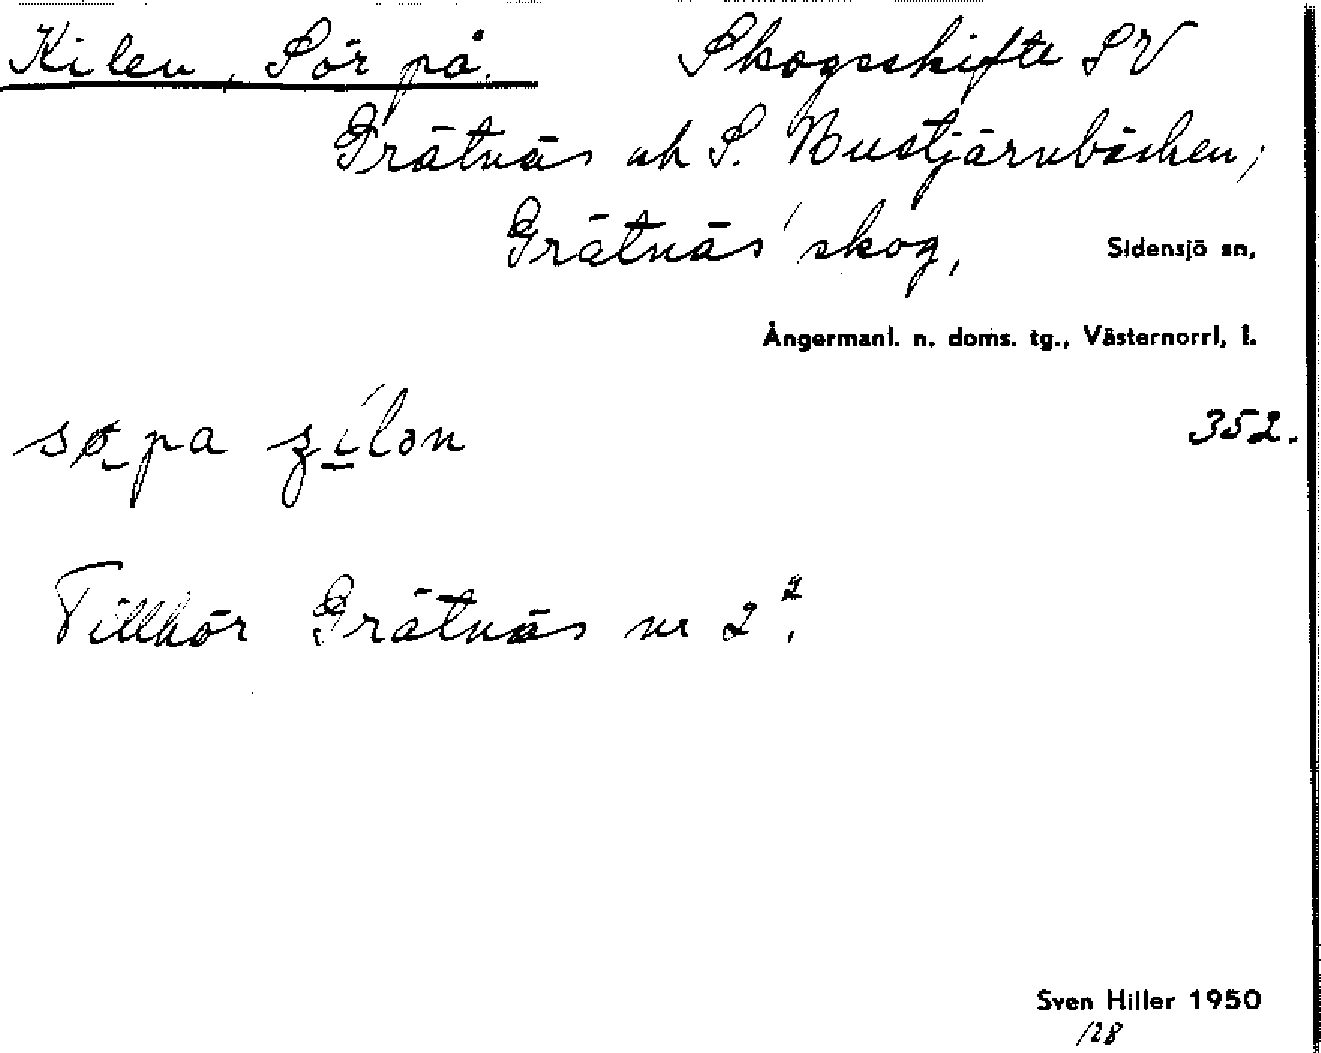 Kilen, Sör på. Skogsskifte SV
Grätnäs uh S. Bustjärnbäcken;
Grätnäs' skog, Sidensjö sn,
Ångermanl. n. doms. tg., Västernorrl. l.
352.
Tillhör Grätnäs nr 2².
Sven Hiller 1950
128